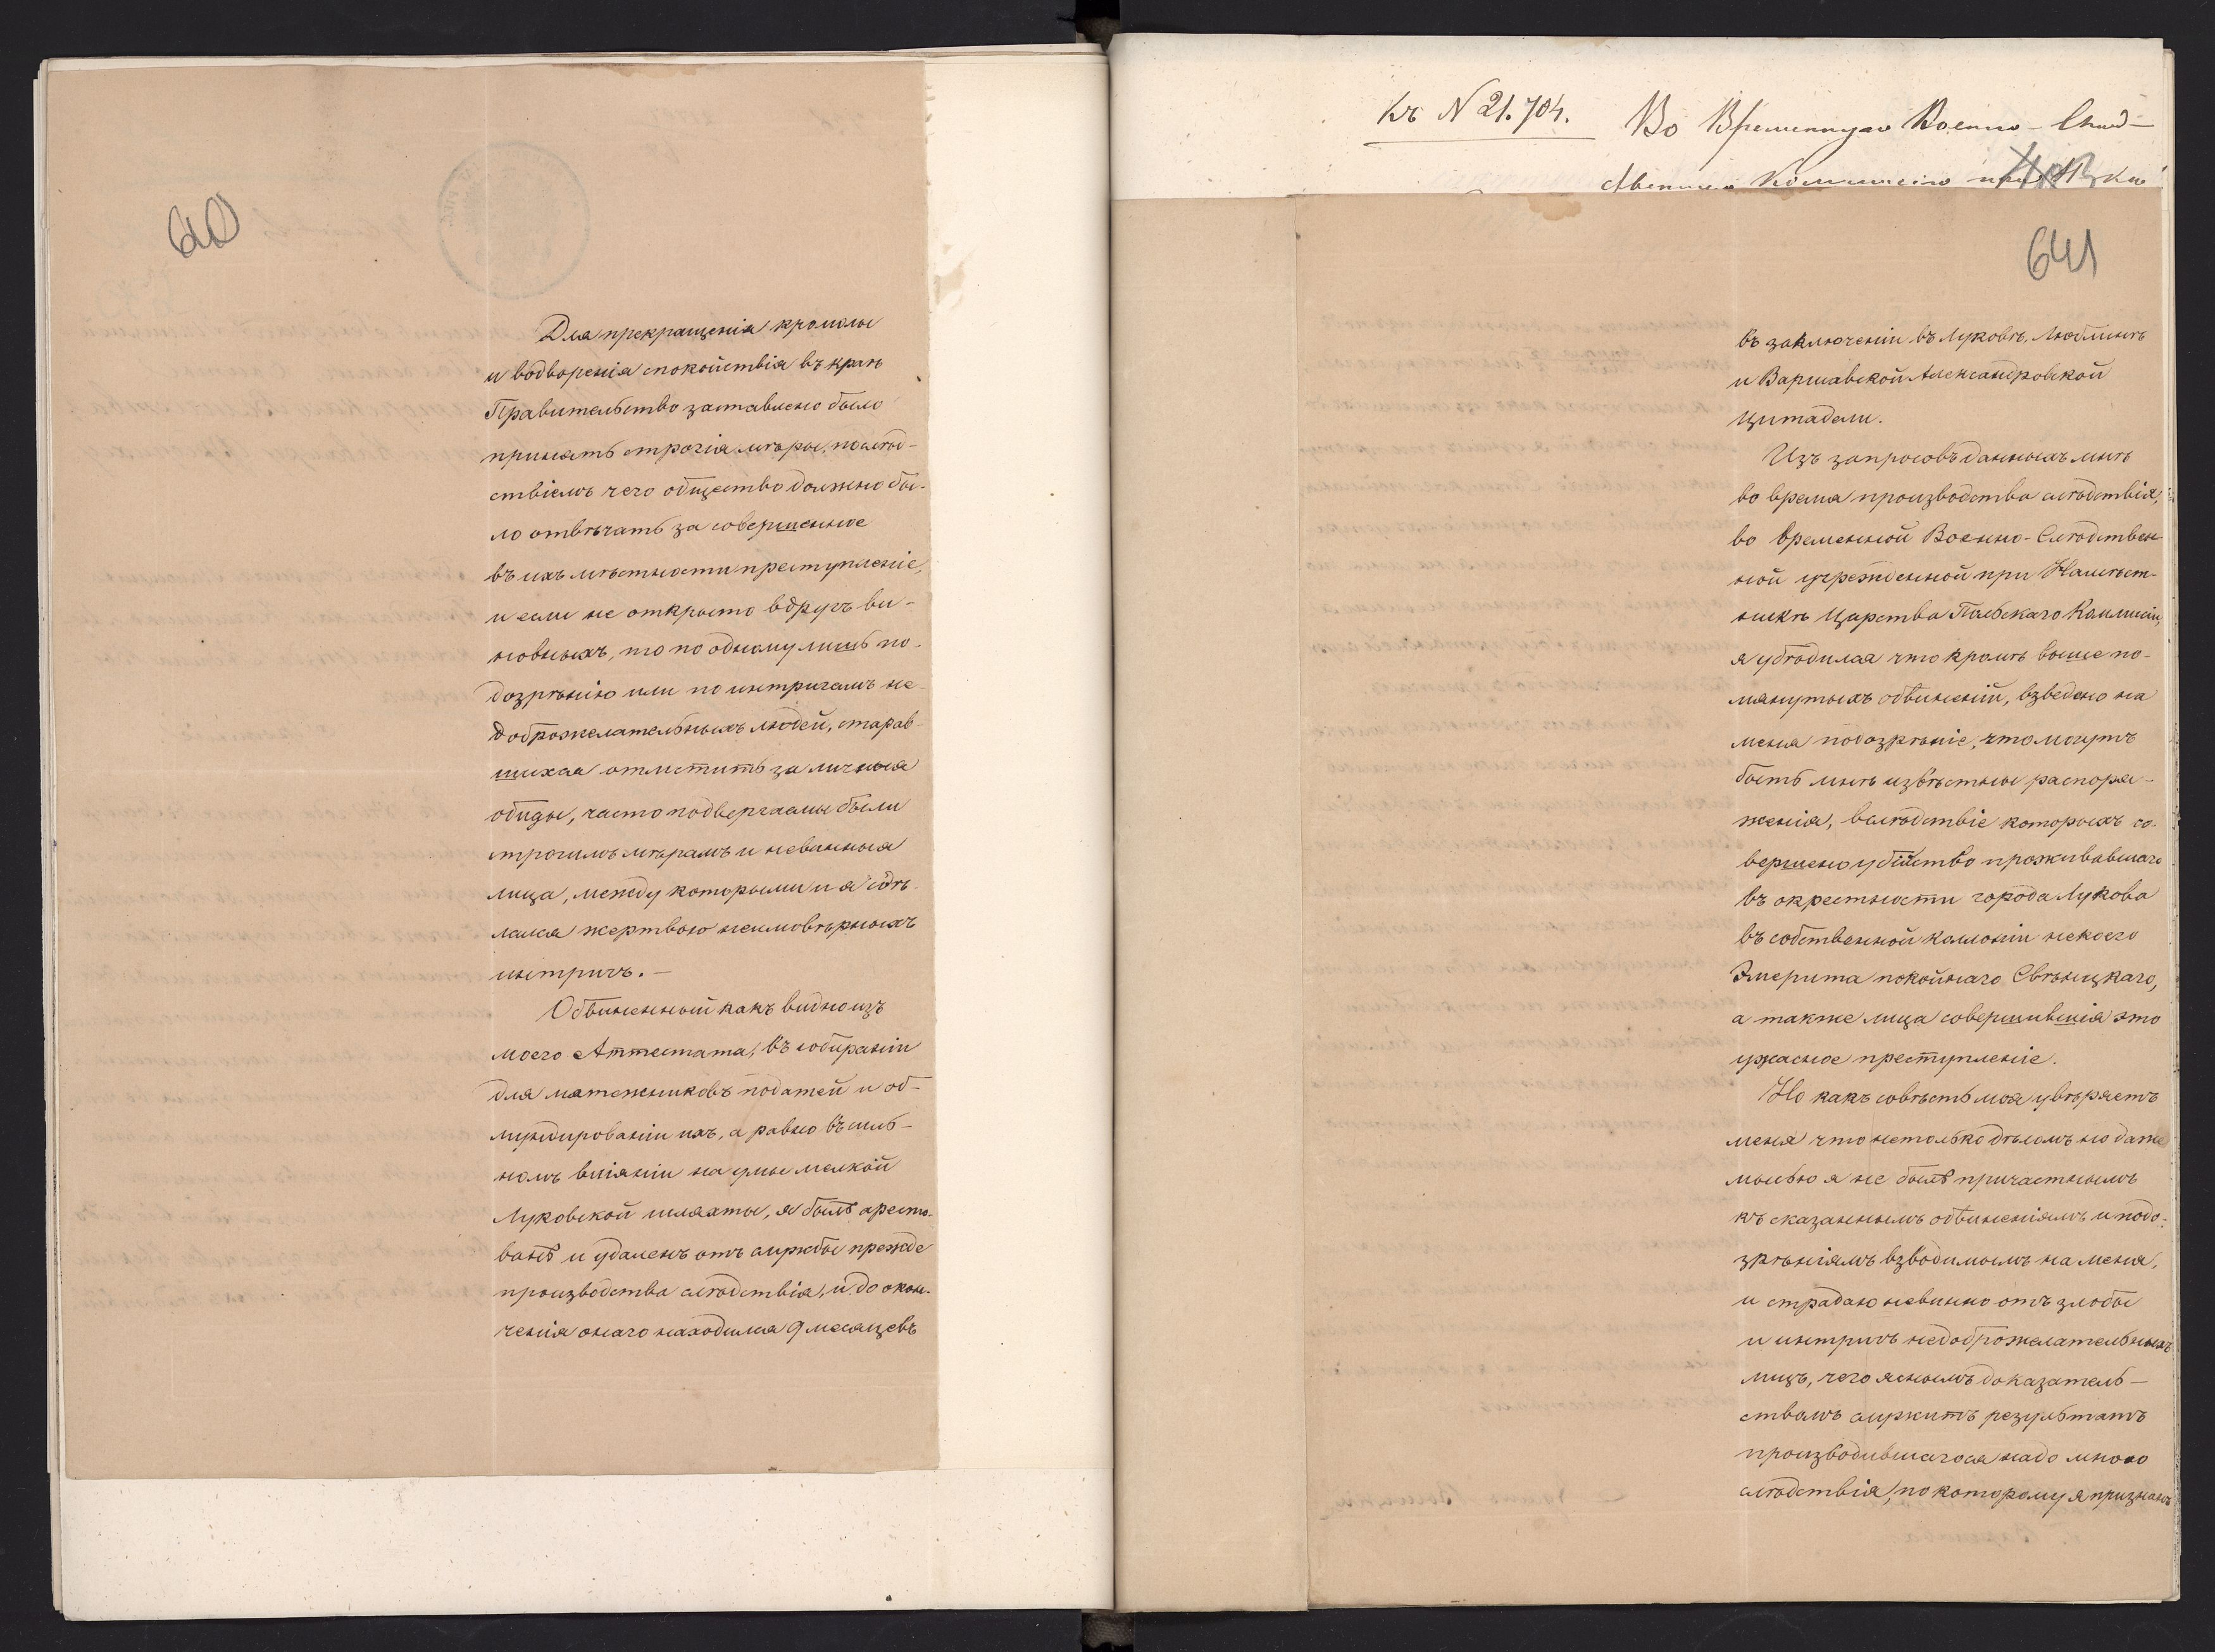 60
Для прекращенія крамолы
и водворенія спокойствія въ краѣ
Правительство заставлено было
принять строгія мѣры, послѣд-
ствіемъ чего общество должно бы-
ло отвѣчать за совершенное
въ ихъ мѣстности преступленіе,
и если не открыто вдругъ ви-
новныхъ, то по одному лишь по-
дозрѣнію или по интригамъ не-
доброжелательныхъ людей, старав-
шихся отмстить за личныя
обиды, часто подвергаемы были
строгимъ мѣрамъ и невинныя
лица, между которыми и я сдѣ-
лался жертвою неимовѣрныхъ
интригъ.—
Обвиненный какъ видно изъ
моего Аттестата, въ собираніи
для мятежниковъ податей и об-
мундированіи ихъ, а равно въ силь-
номъ вліяніи на умы мелкой
Луковской шляхты, я былъ аресто-
ванъ и удаленъ отъ службы прежде
производства слѣдствія, и до окон-
ченія онаго находился 9 месяцевъ
Къ N 21.704.
Во Временную Военно-Слѣд-
ственную Коммиссію при
641
въ заключеніи въ Луковѣ, Люблинѣ
и Варшавской Александровской
цитадели.
Изъ запросовъ данныхъ мнѣ
во время производства слѣдствія,
во временной Военно-Слѣдствен-
ной учрежденной при Намѣст-
никѣ Царства Польскаго Коммисіи,
я убѣдился что кромѣ выше по-
мянутыхъ обвиненій, взведено на
меня подозрѣніе, что могутъ
быть мнѣ извѣстны распоря-
женія, вслѣдствіе которыхъ со-
вершено убійство проживавшаго
въ окрестности города Лукова
въ собственной колоніи некоего
Эмерита покойнаго Свѣницкаго,
а также лица совершившія это
ужасное преступленіе.
Но какъ совѣсть моя увѣряетъ
меня что не только дѣломъ но даже
мыслью я не былъ причастнымъ
къ сказаннымъ обвиненіямъ и подо-
зрѣніямъ взводимымъ на меня,
и страдаю невинно отъ злобы
и интригъ недоброжелательныхъ
лицъ, чего яснымъ доказатель-
ствомъ служитъ результатъ
производившагося надо мною
слѣдствія, по которому я признанъ